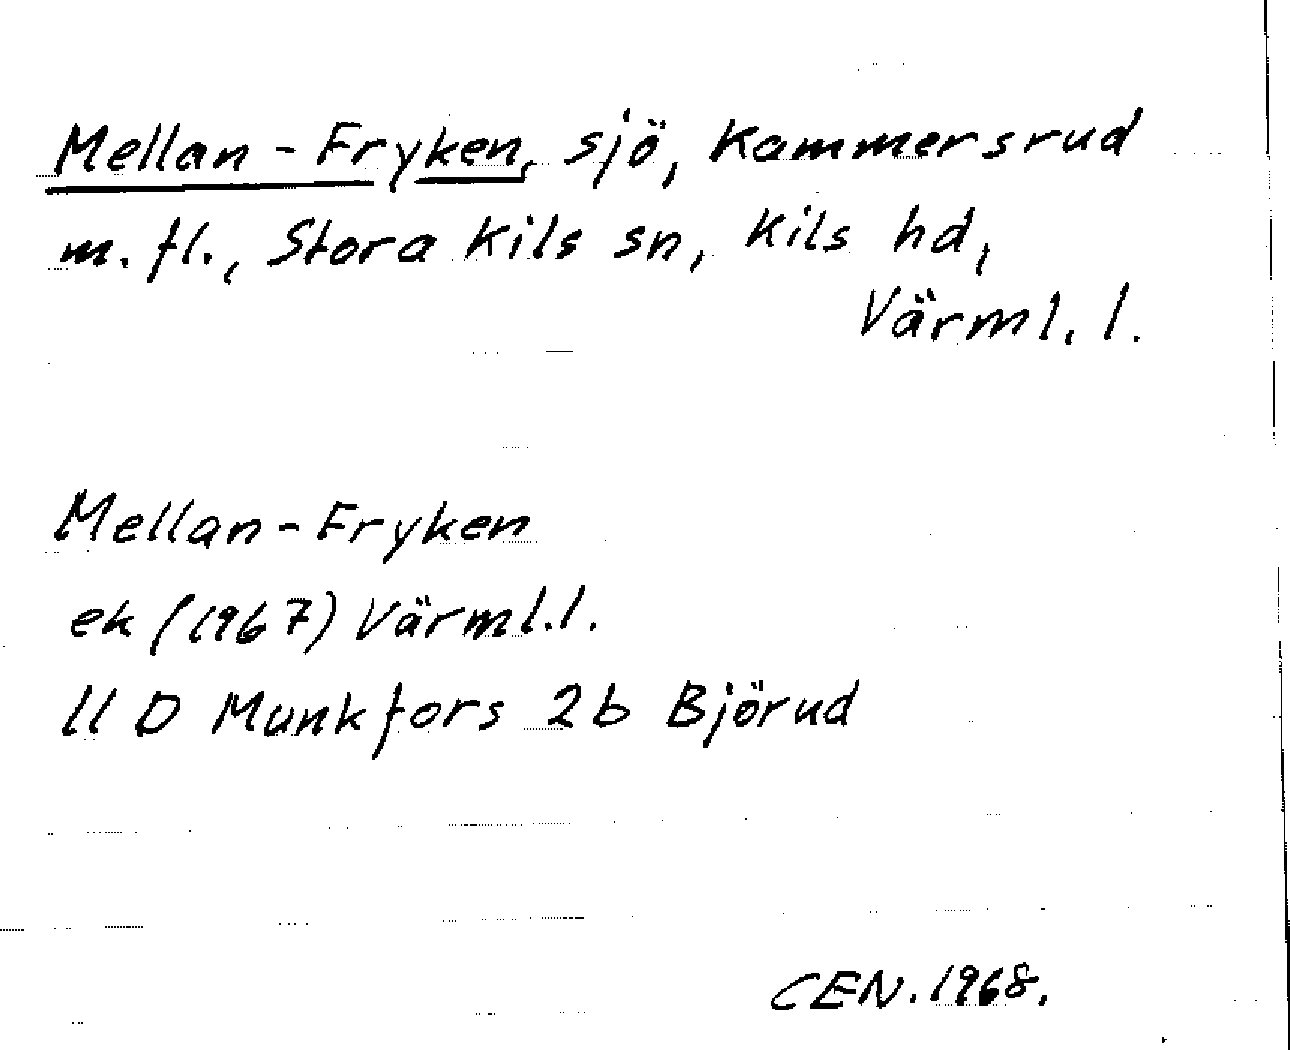 Mellan-Fryken, sjö, Kammersrud
m.fl., Stora Kils sn, Kils hd,
Värml. l.
Mellan-Fryken
ek (1967) Värml.l.
11 D Munkfors 2b Björud
CEN. 1968.